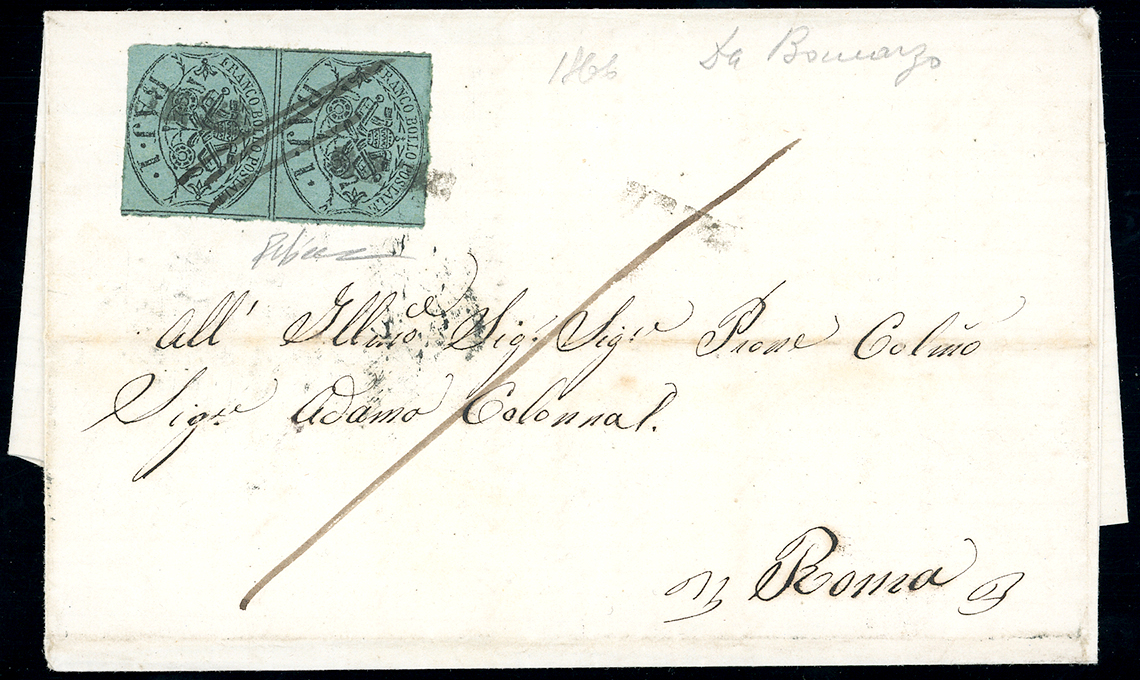 1866 Da Bomarzo
FRANCO BOLLO POSTALE
BAJ. 1.
FRANCO BOLLO POSTALE
BAJ. 1.
All' Illmo Sigr. Sigr Prone Colmo
Sigr. Adamo Colonna
Roma